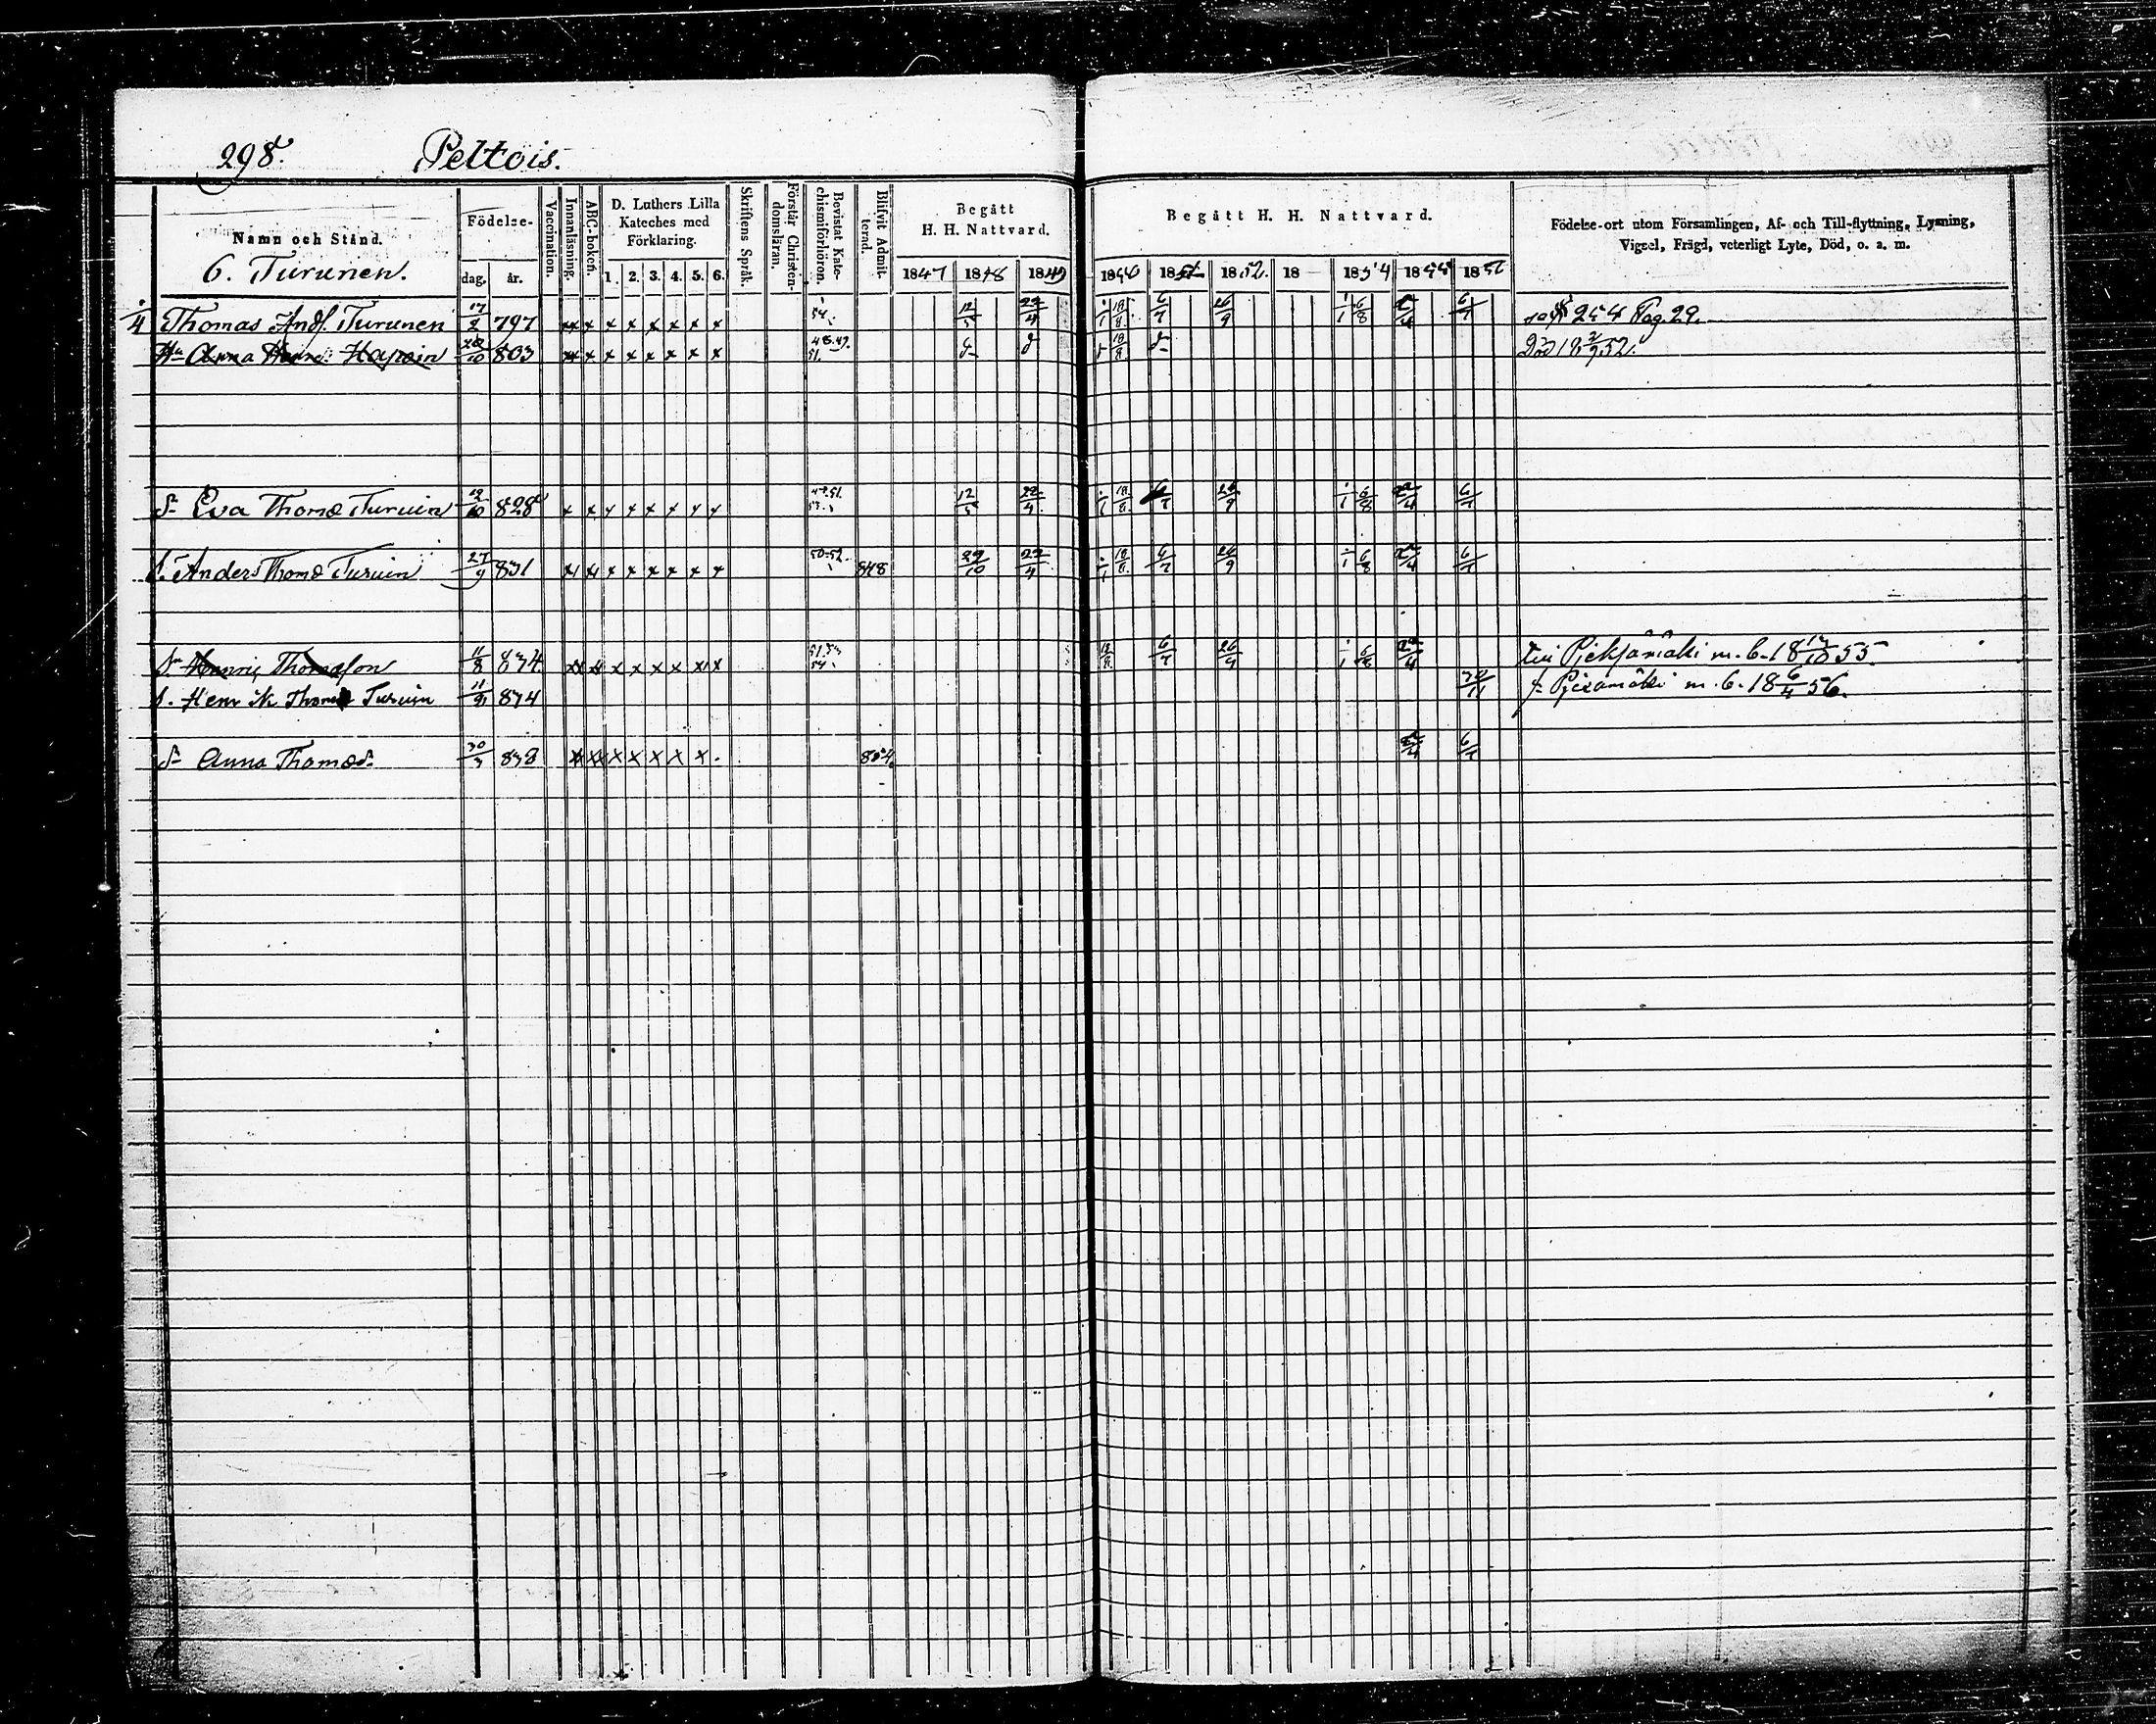 298. Peltois.
Namn och Stånd.
6. Turunen.
Födelse-
dag. år.
Vaccination.
Innanläsning.
ABC-boken.
D. Luthers Lilla
Kateches med
Förklaring.
1. 2. 3. 4. 5. 6.
Skriftens Språk.
Förstår Christen-
domsläran.
Bevistat Kate-
chismiförhören.
Blifvit Admit-
terad.
Begått
H. H. Nattvard.
1847 1848 1849
Begått H. H. Nattvard.
1850 1851 1852. 18 1854 1855 1856
Födelse-ort utom Församlingen, Af- och Till-flyttning, Lysning,
Vigsel, Frägd, veterligt Lyte, Död, o. a. m.
1/4 Thomas Andˢ Turunen 17/2 797 x x x x x x x x 54. 12/5 22/4 1/1 18/8 6/7 26/9 1/1 6/8 22/4 6/7 254 Pag. 29.
Hu Anna Henr: Hapoin 28/10 803 x x x x x x x x 48.49. 51. 18/8 Död 18 2/9 52.
Dr Eva Thomæ Turuin 12/10 828 x x x x x x x x 12/5 22/4 1/1 18/8 6/7 26/9 1/1 6/8 22/4 6/7
S. Anders Thomæ Turuin 27/9 831 x x x x x x x x 50-52. 848 29/10 22/4 1/1 18/8 6/7 26/9 1/1 6/8 22/4 6/7
Sn Henric Thomasson 11/8 834 x x x x x x x x 54 18/8 6/7 26/9 1/1 6/8 22/4 till Pjeksämäki m. b. 18 17/10 55.
S. Henrik Thomæ Turuin 11/8 834 30/11 fr. Pjexämäki m. b. 18 6/4 56.
Dr Anna Thomædr 30/3 838 x x x x x x x 854. 22/4 6/7